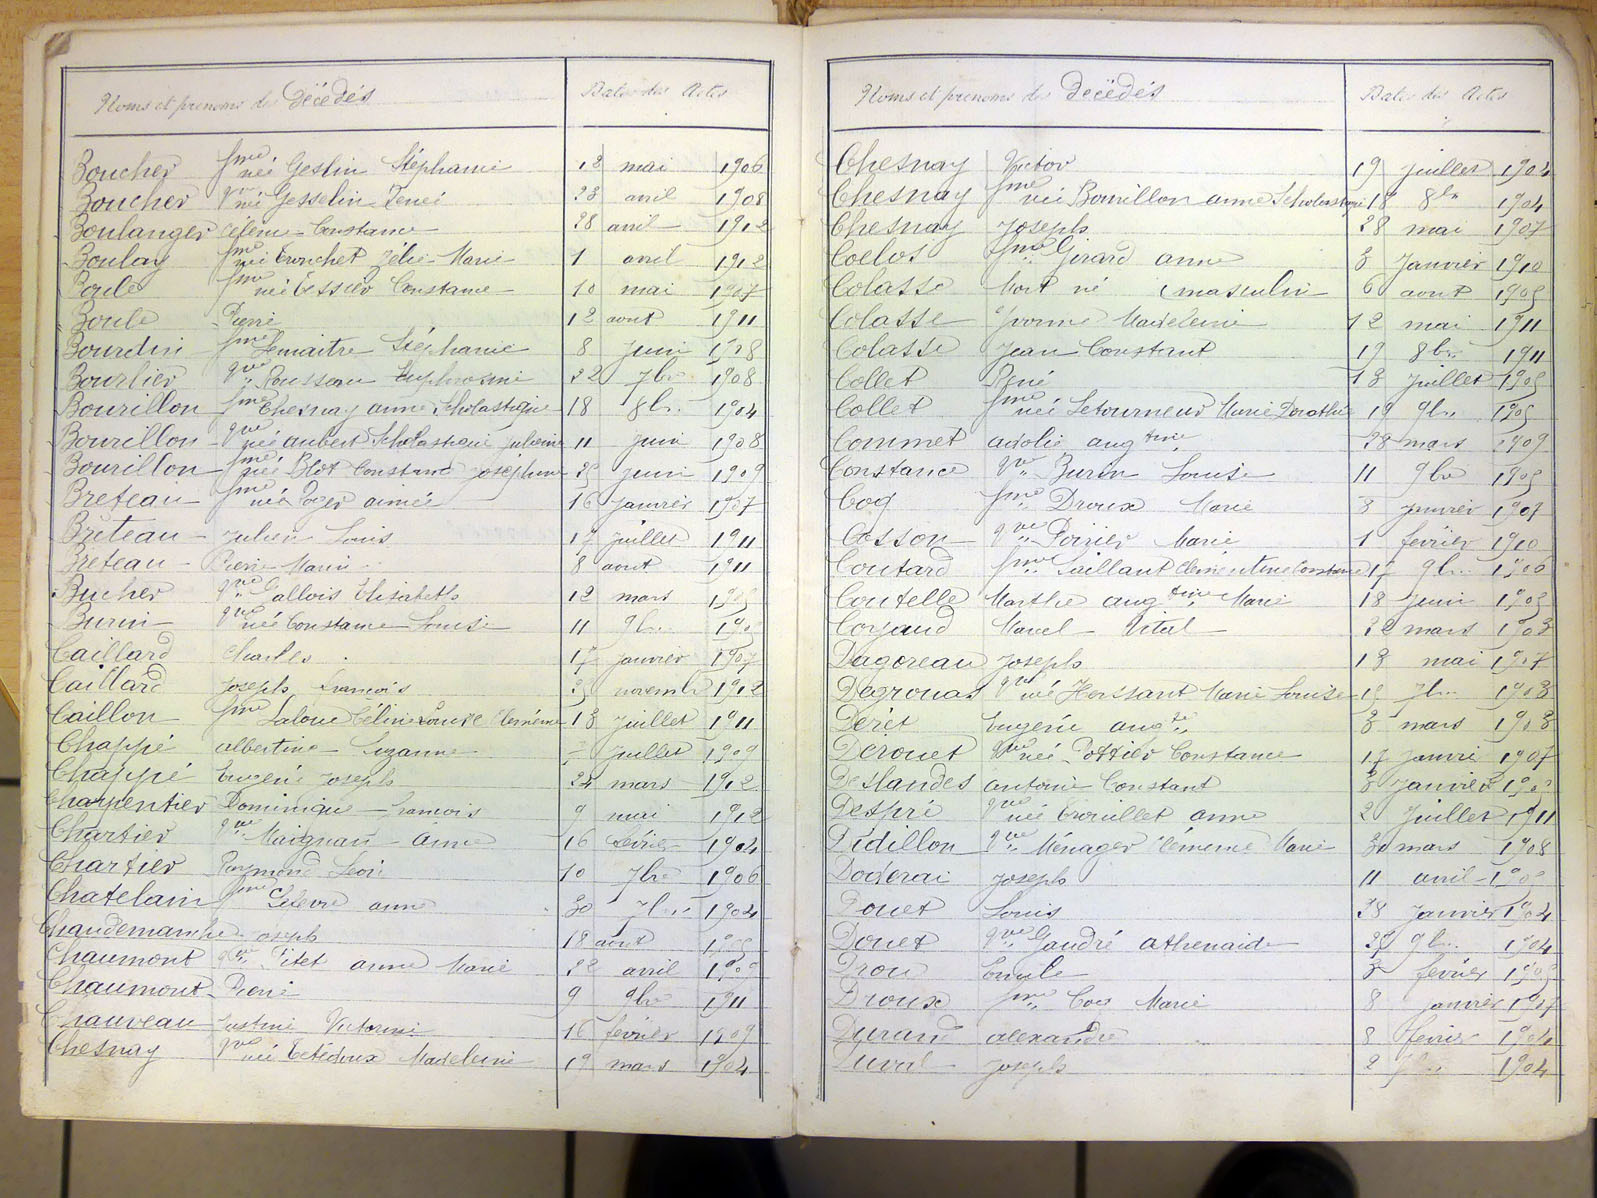 Noms et prénoms des Décédés Dates des Actes
Boucher fme née Geslin Stéphanie 18 mai 1906
Boucher vve née Gesselin Renée 23 avril 1908
Boulanger Céfénie Constance 28 avril 1912
Boulay fme née Tronchet Zélie Marie 1 avril 1912
Boulé fme née Tessier Constance 10 mai 1907
Boulé Pierre 12 aout 1911
Bourdin fme Lemaitre Stéphanie 8 juin 1908
Bourlier vve Rousseau Euphrosine 22 7bre 1908
Bourillon fme Chesnay anne Scholastique 18 8bre 1904
Bourillon vve née aubert Scholastique julienne 11 juin 1908
Bourillon fme née Blot Constance joséphine 25 juin 1909
Breteau fme née Roger aimée 16 janvier 1907
Breteau julien Louis 17 juillet 1911
Breteau Pierre Marin 8 aout 1911
Bucher vve Gallois Elisabeth 12 mars
Burin vve née Constance Louise 11 9bre
Caillard Charles 17 janvier 1907
Caillard joseph françois 25 novembre 1912
Caillon fme Laloue Céline Louise Clémence 13 juillet 1911
Chappé albertine Suzanne juillet 1909
Chappé Eugène joseph 24 mars 1912
Charpentier Dominique françois 9 mai 1912
Chartier vve Maignan anne 16 févrie 1904
Chartier Raymond Léon 10 7bre 1906
Chatelain fme Lefevre anne 30 7bre 1904
Chaudemanche joseph 18 aout 1905
Chaumont vve Pitet anne Marie 22 avril
Chaumont René 9 9bre 1911
Chauveau justine Victorine 16 fevrier 1909
Chesnay vve née Tetedoux Madeleine 19 mars 1904
Noms et prénoms des Décédés Dates des Actes
Chesnay Victor 19 juillet 1904
Chesnay fme née Bourillon anne Scholastique 18 8bre 1904
Chesnay joseph 28 mai 1907
Coelos fme Girard anne 3 janvier 1910
Colasse Mort né (masculin 6 aout 1905
Colasse Yvonne Madeleine 12 mai 1911
Colasse Jean Constant 19 8bre 1911
Collet René 13 juillet 1905
Collet fme née Letourneur Marie Dorothée 19 9bre 1905
Commet adolie augtine 28 mars 1909
Constance vve Burin Louise 11 9bre 1905
Coq fme Droux Marie 8 janvier 1907
Cosson vve Poirier Marie 1 fevrier 1910
Coutard fme Gaillant Clémentine Constance 17 9bre 1906
Coutelle Marthe augtine Marie 18 juin 1905
Coyaud Marcel Vital 22 mars 1903
Dagoreau joseph 18 mai 1907
Degrouas vve née Horssant Marie Louise 15 7bre 1903
Deret Eugénie augte 3 mars 1903
Derouet vve née Pottier Constance 17 janvi 1907
Deslandes antoine Constant 3 janvier
Despré vve née Trouillet anne 2 juillet 1911
Didillon vve Ménager Clémence Marie 30 mars 1908
Doderai joseph 11 avril
Douet Louis 28 janvier 1904
Douet vve Gaudré athenaide 25 9bre 1904
Drou Emile 3 fevrier 1905
Droux fme Coq Marie 8 janvier 1907
Durand alexandre 8 fevrier 1904
Duval joseph 2 1904